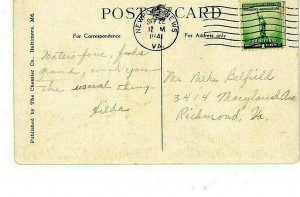 POST CARD
For Correspondence
For Address only
NEWPORT NEWS
SEP 22
12 M
1941
VA.
Water's fine, food's
grand, wish you
the usual thing.
Hilda
Mr. Belfield
3414 Maryland Ave
Richmond, Va.
Published by The Chessler Co., Baltimore, Md.